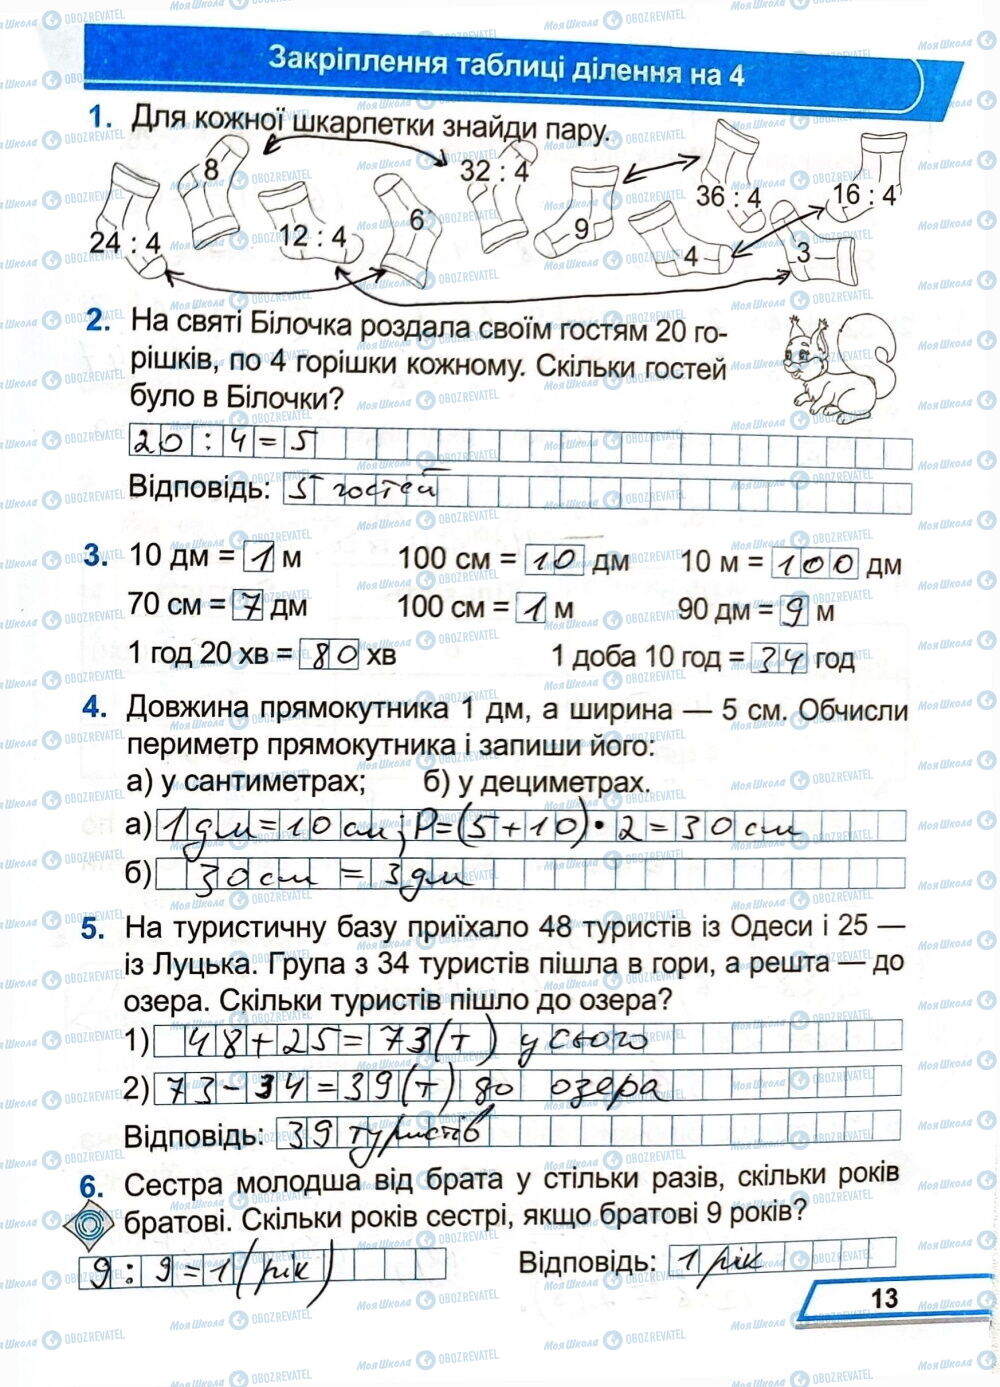 Закріплення таблиці ділення на 4
1. Для кожної шкарпетки знайди пару.
8 32 : 4 36 : 4 16 : 4
24 : 4 12 : 4 6 9 4 3
2. На святі Білочка роздала своїм гостям 20 го-
рішків, по 4 горішки кожному. Скільки гостей
було в Білочки?
20 : 4 = 5
Відповідь: 5 гостей
3. 10 дм = 1 м 100 см = 10 дм 10 м = 100 дм
70 см = 7 дм 100 см = 1 м 90 дм = 9 м
1 год 20 хв = 80 хв 1 доба 10 год = 34 год
4. Довжина прямокутника 1 дм, а ширина — 5 см. Обчисли
периметр прямокутника і запиши його:
а) у сантиметрах; б) у дециметрах.
а) 1 дм = 10 см; Р = (5 + 10) • 2 = 30 см
б) 30 см = 3 дм
5. На туристичну базу приїхало 48 туристів із Одеси і 25 —
із Луцька. Група з 34 туристів пішла в гори, а решта — до
озера. Скільки туристів пішло до озера?
1) 48 + 25 = 73 (т) усього
2) 73 - 34 = 39 (т) до озера
Відповідь: 39 туристів
6. Сестра молодша від брата у стільки разів, скільки років
братові. Скільки років сестрі, якщо братові 9 років?
9 : 9 = 1 (рік) Відповідь: 1 рік
13
МояШкола OBOZREVATEL